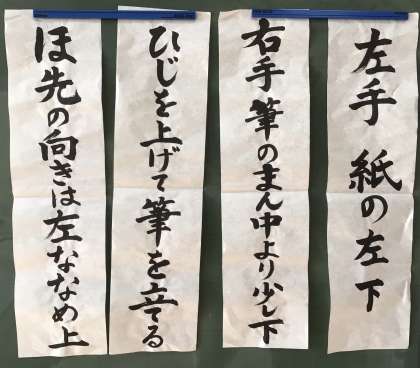 左手 紙の左下
右手 筆のまん中より少し下
ひじを上げて筆を立てる
ほ先の向きは左ななめ上